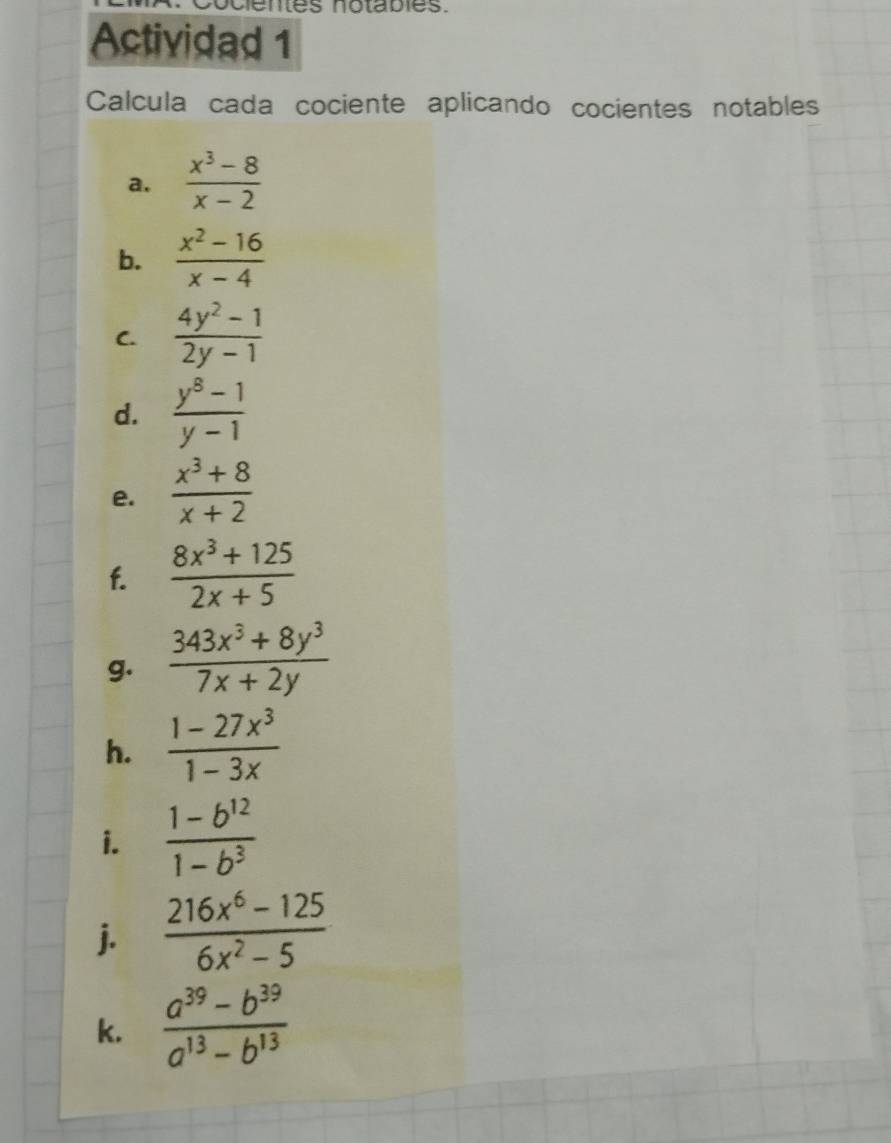 Cocientes notables.
Actividad 1
Calcula cada cociente aplicando cocientes notables
a. \frac{x^3 - 8}{x - 2}
b. \frac{x^2 - 16}{x - 4}
c. \frac{4y^2 - 1}{2y - 1}
d. \frac{y^8 - 1}{y - 1}
e. \frac{x^3 + 8}{x + 2}
f. \frac{8x^3 + 125}{2x + 5}
g. \frac{343x^3 + 8y^3}{7x + 2y}
h. \frac{1 - 27x^3}{1 - 3x}
i. \frac{1 - b^{12}}{1 - b^3}
j. \frac{216x^6 - 125}{6x^2 - 5}
k. \frac{a^{39} - b^{39}}{a^{13} - b^{13}}